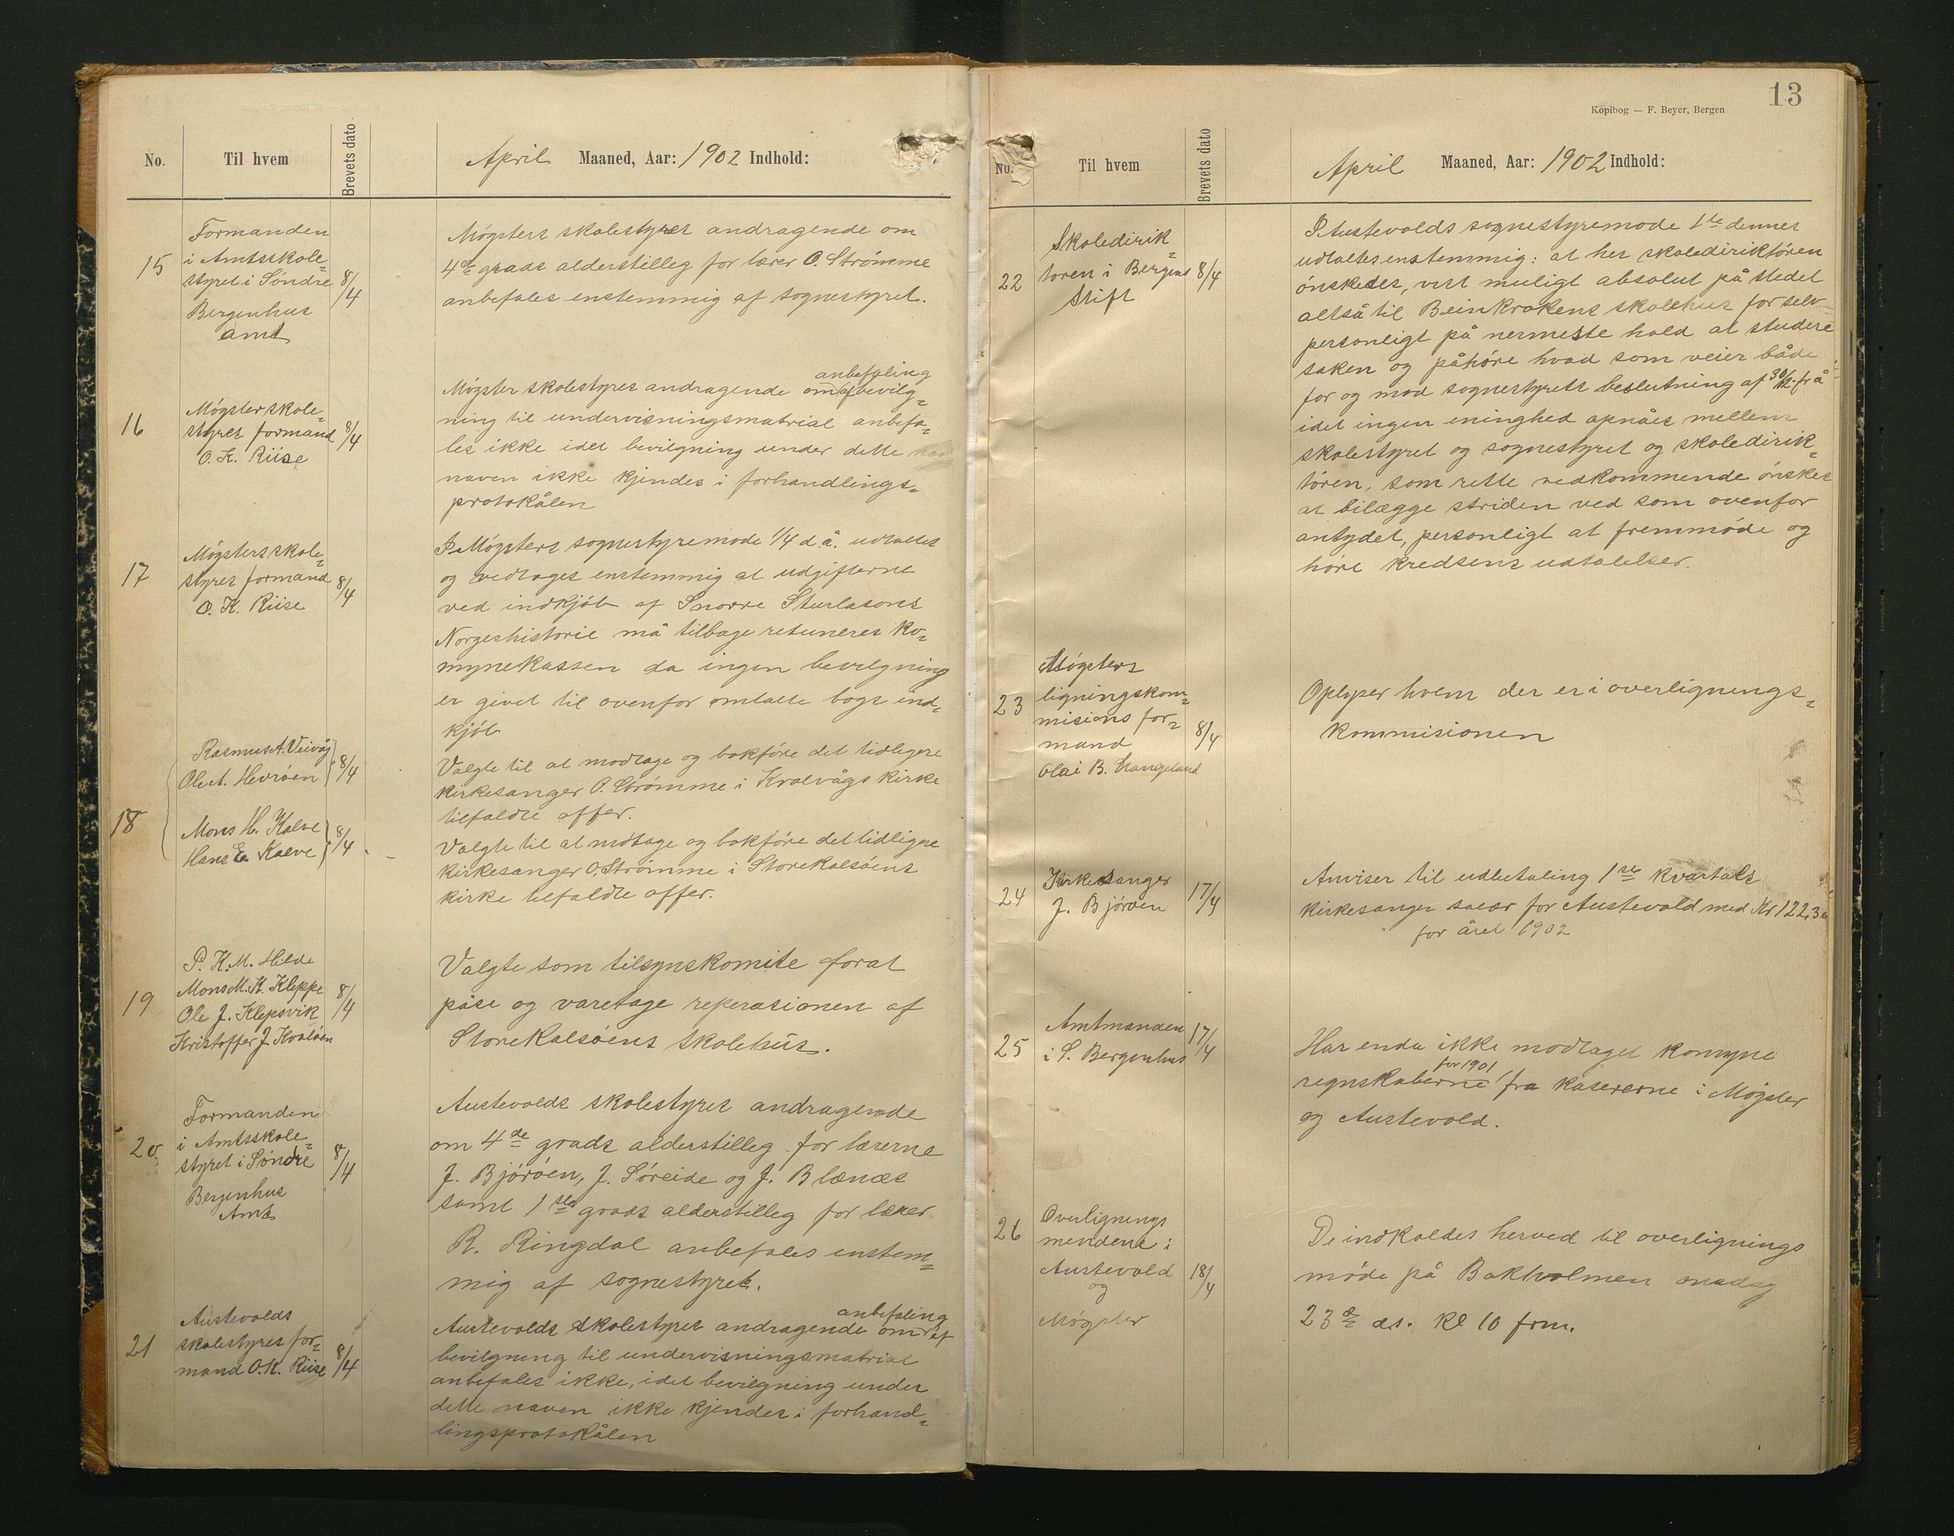 No.
Til hvem
Brevets dato
April Maaned, Aar: 1902 Indhold:
15
Formanden
i Amtsskole=
styret i Søndre
Bergenhus
amt
8/4
Møgsters skolestyres andragende om
4de grads alderstilleg for lærer O. Strømme
anbefales enstemmig af sognestyret.
16
Møgster skole=
styres formand
O. K. Riise
8/4
anbefaling
Møgster skolestyres andragende om af bevilg=
ning til undervisningsmatrial anbefa=
les ikke idet bevilgning under dette
naven ikke kjendes i forhandlings=
protokålen
17
Møgsters skole=
styres formand
O. K. Riise
8/4
I Møgsters sognestyremøde 1/4 d.å. udtaltes
og vedtoges enstemmig at udgifterne
ved indkjøb af Snorre Sturlasons
Norgeshistorie må tilbage retuneres ko=
mynekassen da ingen bevilgning
er givet til ovenfor omtalte bogs ind=
kjøb
18
Rasmus A. Veivåg
Ole A. Hevrøen
8/4
Valgte til at modtage og bokføre det tidligere
kirkesanger O. Strømme i Kvalvågs kirke
tilfaldte offer.
Mons H. Kalve
Hans E. Kalve
8/4
Valgte til at modtage og bokføre det tidligere
kirkesanger O. Strømme i Storekalsøens
kirke tilfaldte offer.
19
P. K. M. Hilde
Mons M. K. Kleppe
Ole J. Klepsvik
Kristoffer J. Kvaløen
8/4
Valgte som tilsynskomite forat
påse og varetage reperasionen af
Storekalsøens skolehus.
20
Formanden
i Amtsskole=
styret i Søndre
Bergenhus
Amt
8/4
Austevolds skolestyres andragende
om 4de grads alderstilleg for lærerne
J. Bjørøen, J. Søreide og J. Blænæs
samt 1ste grads alderstilleg for lærer
R. Ringdal anbefales enstem=
mig af sognestyret.
21
Austevolds
skolestyres for=
mand O. K. Riise
8/4
anbefaling
Austevolds skolestyres andragende om af
bevilgning til undervisningsmatrial
anbefales ikke, idet bevilgning under
dette naven ikke kjendes i forhand=
lingsprotokålen
13
Kopibog — F. Beyer, Bergen
No.
Til hvem
Brevets dato
April Maaned, Aar: 1902 Indhold:
22
Skoledirik=
tøren i Bergens
Stift
8/4
I Austevolds sognestyremøde 1ste dennes
udtaltes enstemmig: at hos skolediriktøren
ønskedes, vist muligt absolut på stedet
altså til Beinkrokens skolehus for selv
personligt på nermeste hold at studere
saken og påhøre hvad som veier både
for og mod sognestyrets beslutning af 30/12 f å
idet ingen eninghed apnåes mellem
skolestyret og sognestyret og skoledirik=
tøren, som rette vedkommende ønskes
at bilægge striden ved som ovenfor
antydet, personligt at fremmøde og
høre kredsens udtalelser.
23
Møgsters
ligningskom=
misions for=
mand
Olai B. Haugland
8/4
Oplyser hvem der er i overlignings=
kommisionen
24
Kirkesanger
J. Bjørøen
17/4
Anviser til udbetaling 1ste kvartals
kirkesanger salær for Austevold med Kr 122,3
for året 1902
25
Amtmanden
i S. Bergenhus
17/4
Har enda ikke modtaget komyne
for 1901
regnskaberne fra kasererne i Møgster
og Austevold.
26
Overlignings
mendene i
Austevold
og
Møgster
18/4
De indkaldes herved til overlignings
møde på Bakholmen onsdag
23de ds. kl 10 frm.